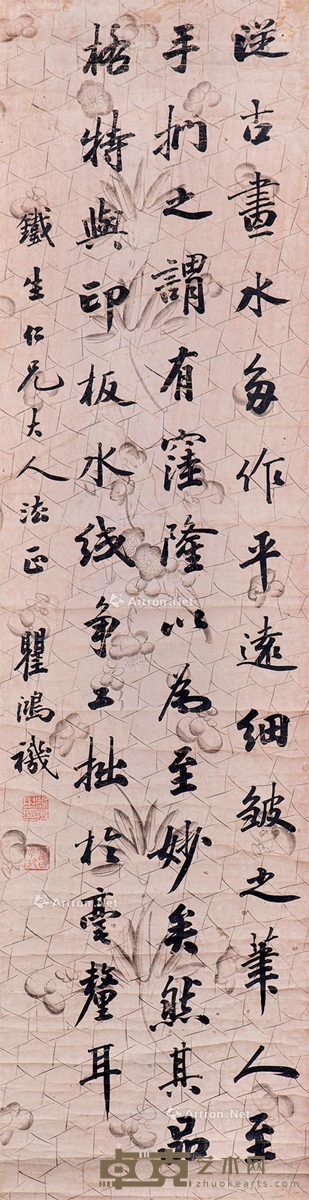 從古畫水多作平遠細皴之筆人至
手捫之謂有窪隆以為至妙矣然其品
格特與印板水线争工拙於毫釐耳
鐵生仁兄大人法正
瞿鴻禨
Artron.Net
Artron.Net
Artron.Net
卓克艺术网
www.zhuokearts.com